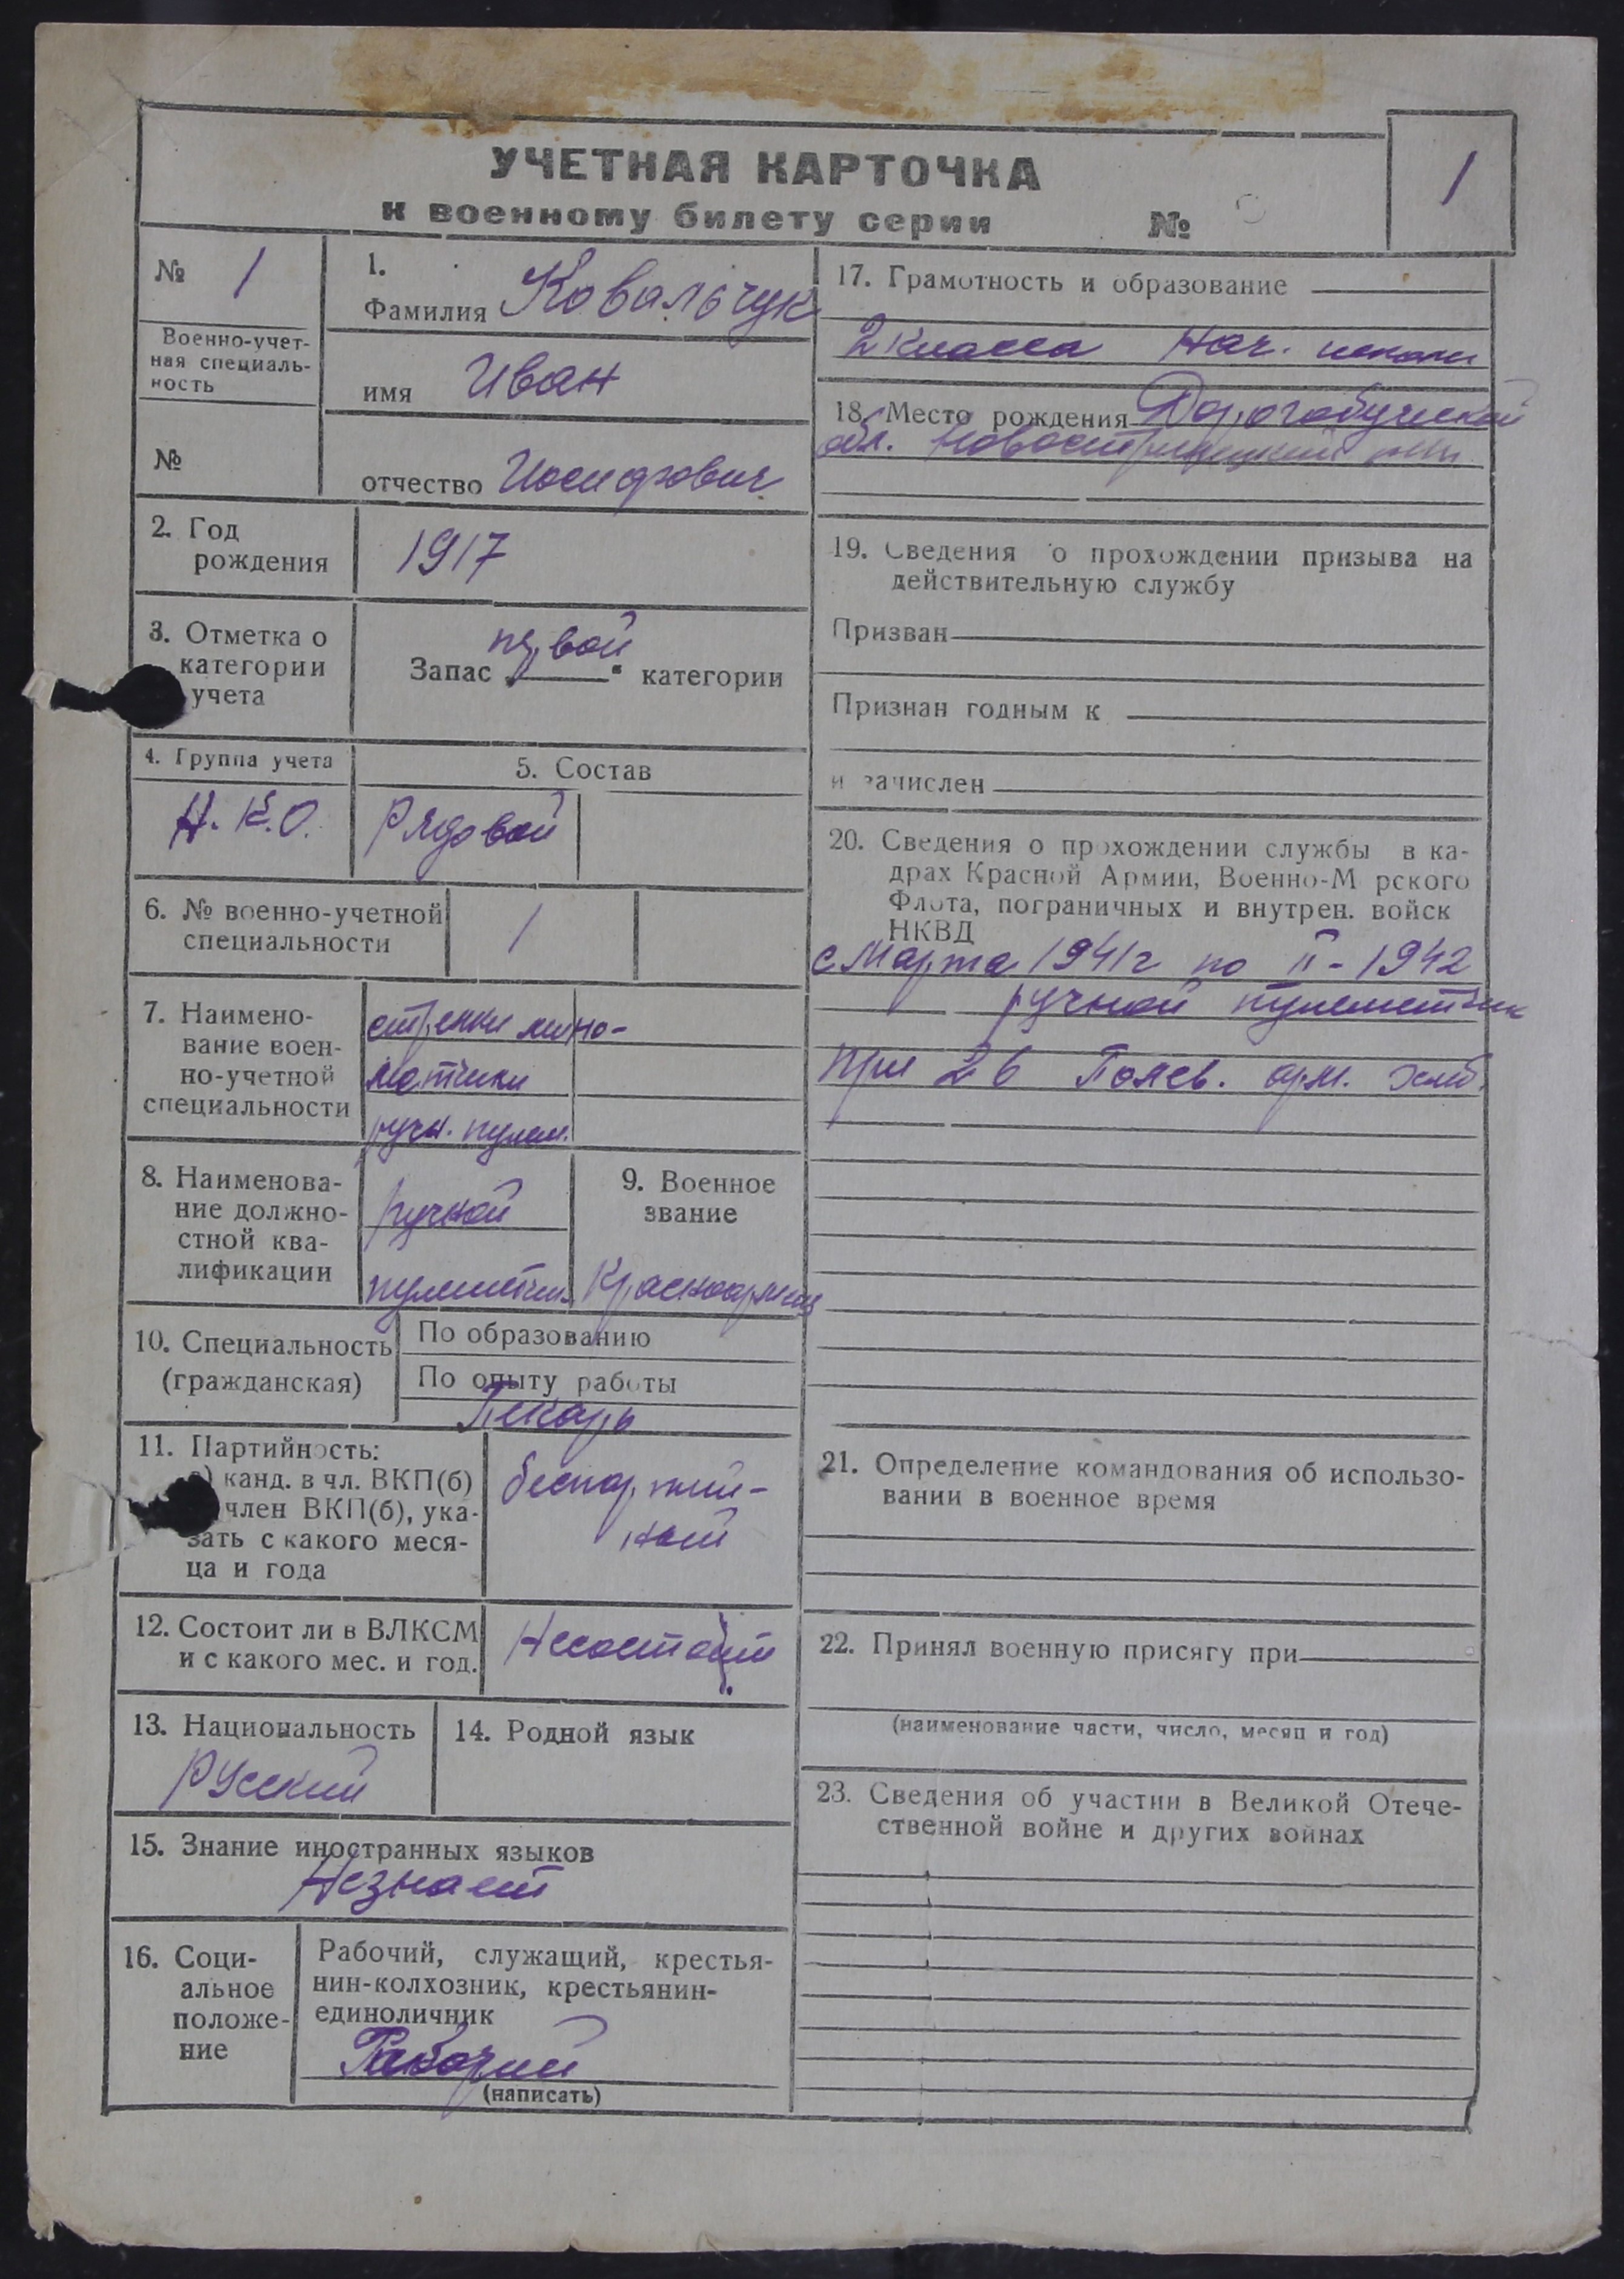 УЧЕТНАЯ КАРТОЧКА
к военному билету серии №
1
№ 1
Военно-учет-
ная специаль-
ность
№
1.
Фамилия Ковальчук
имя Иван
отчество Иосифович
2. Год
рождения
1917
3. Отметка о
категории
учета
первой
Запас „ “ категории
4. Группа учета
Н.К.О.
5. Состав
Рядовой
6. № военно-учетной
специальности
1
7. Наимено-
вание воен-
но-учетной
специальности
стрелки мино-
метчики
ручн. пулем.
8. Наименова-
ние должно-
стной ква-
лификации
ручной
9. Военное
звание
10. Специальность
(гражданская)
По образованию
По опыту работы
Пекарь
11. Партийность:
а) канд. в чл. ВКП(б)
член ВКП(б), ука-
зать с какого меся-
ца и года
беспартий-
ный
12. Состоит ли в ВЛКСМ
и с какого мес. и год.
Несостоит
13. Национальность
Русский
14. Родной язык
15. Знание иностранных языков
Незнает
16. Соци-
альное
положе-
ние
Рабочий, служащий, крестья-
нин-колхозник, крестьянин-
единоличник
Рабочий
(написать)
17. Грамотность и образование
2 класса Нач. школы
18. Место рождения
обл.
19. Сведения о прохождении призыва на
действительную службу
Призван
Признан годным к
и зачислен
20. Сведения о прохождении службы в ка-
драх Красной Армии, Военно-М рского
Флота, пограничных и внутрен. войск
НКВД
с Марта 1941г по II - 1942
ручной пулеметчик
при 26 Полев. арм.
21. Определение командования об использо-
вании в военное время
22. Принял военную присягу при
(наименование части, число, месяц и год)
23. Сведения об участии в Великой Отече-
ственной войне и других войнах